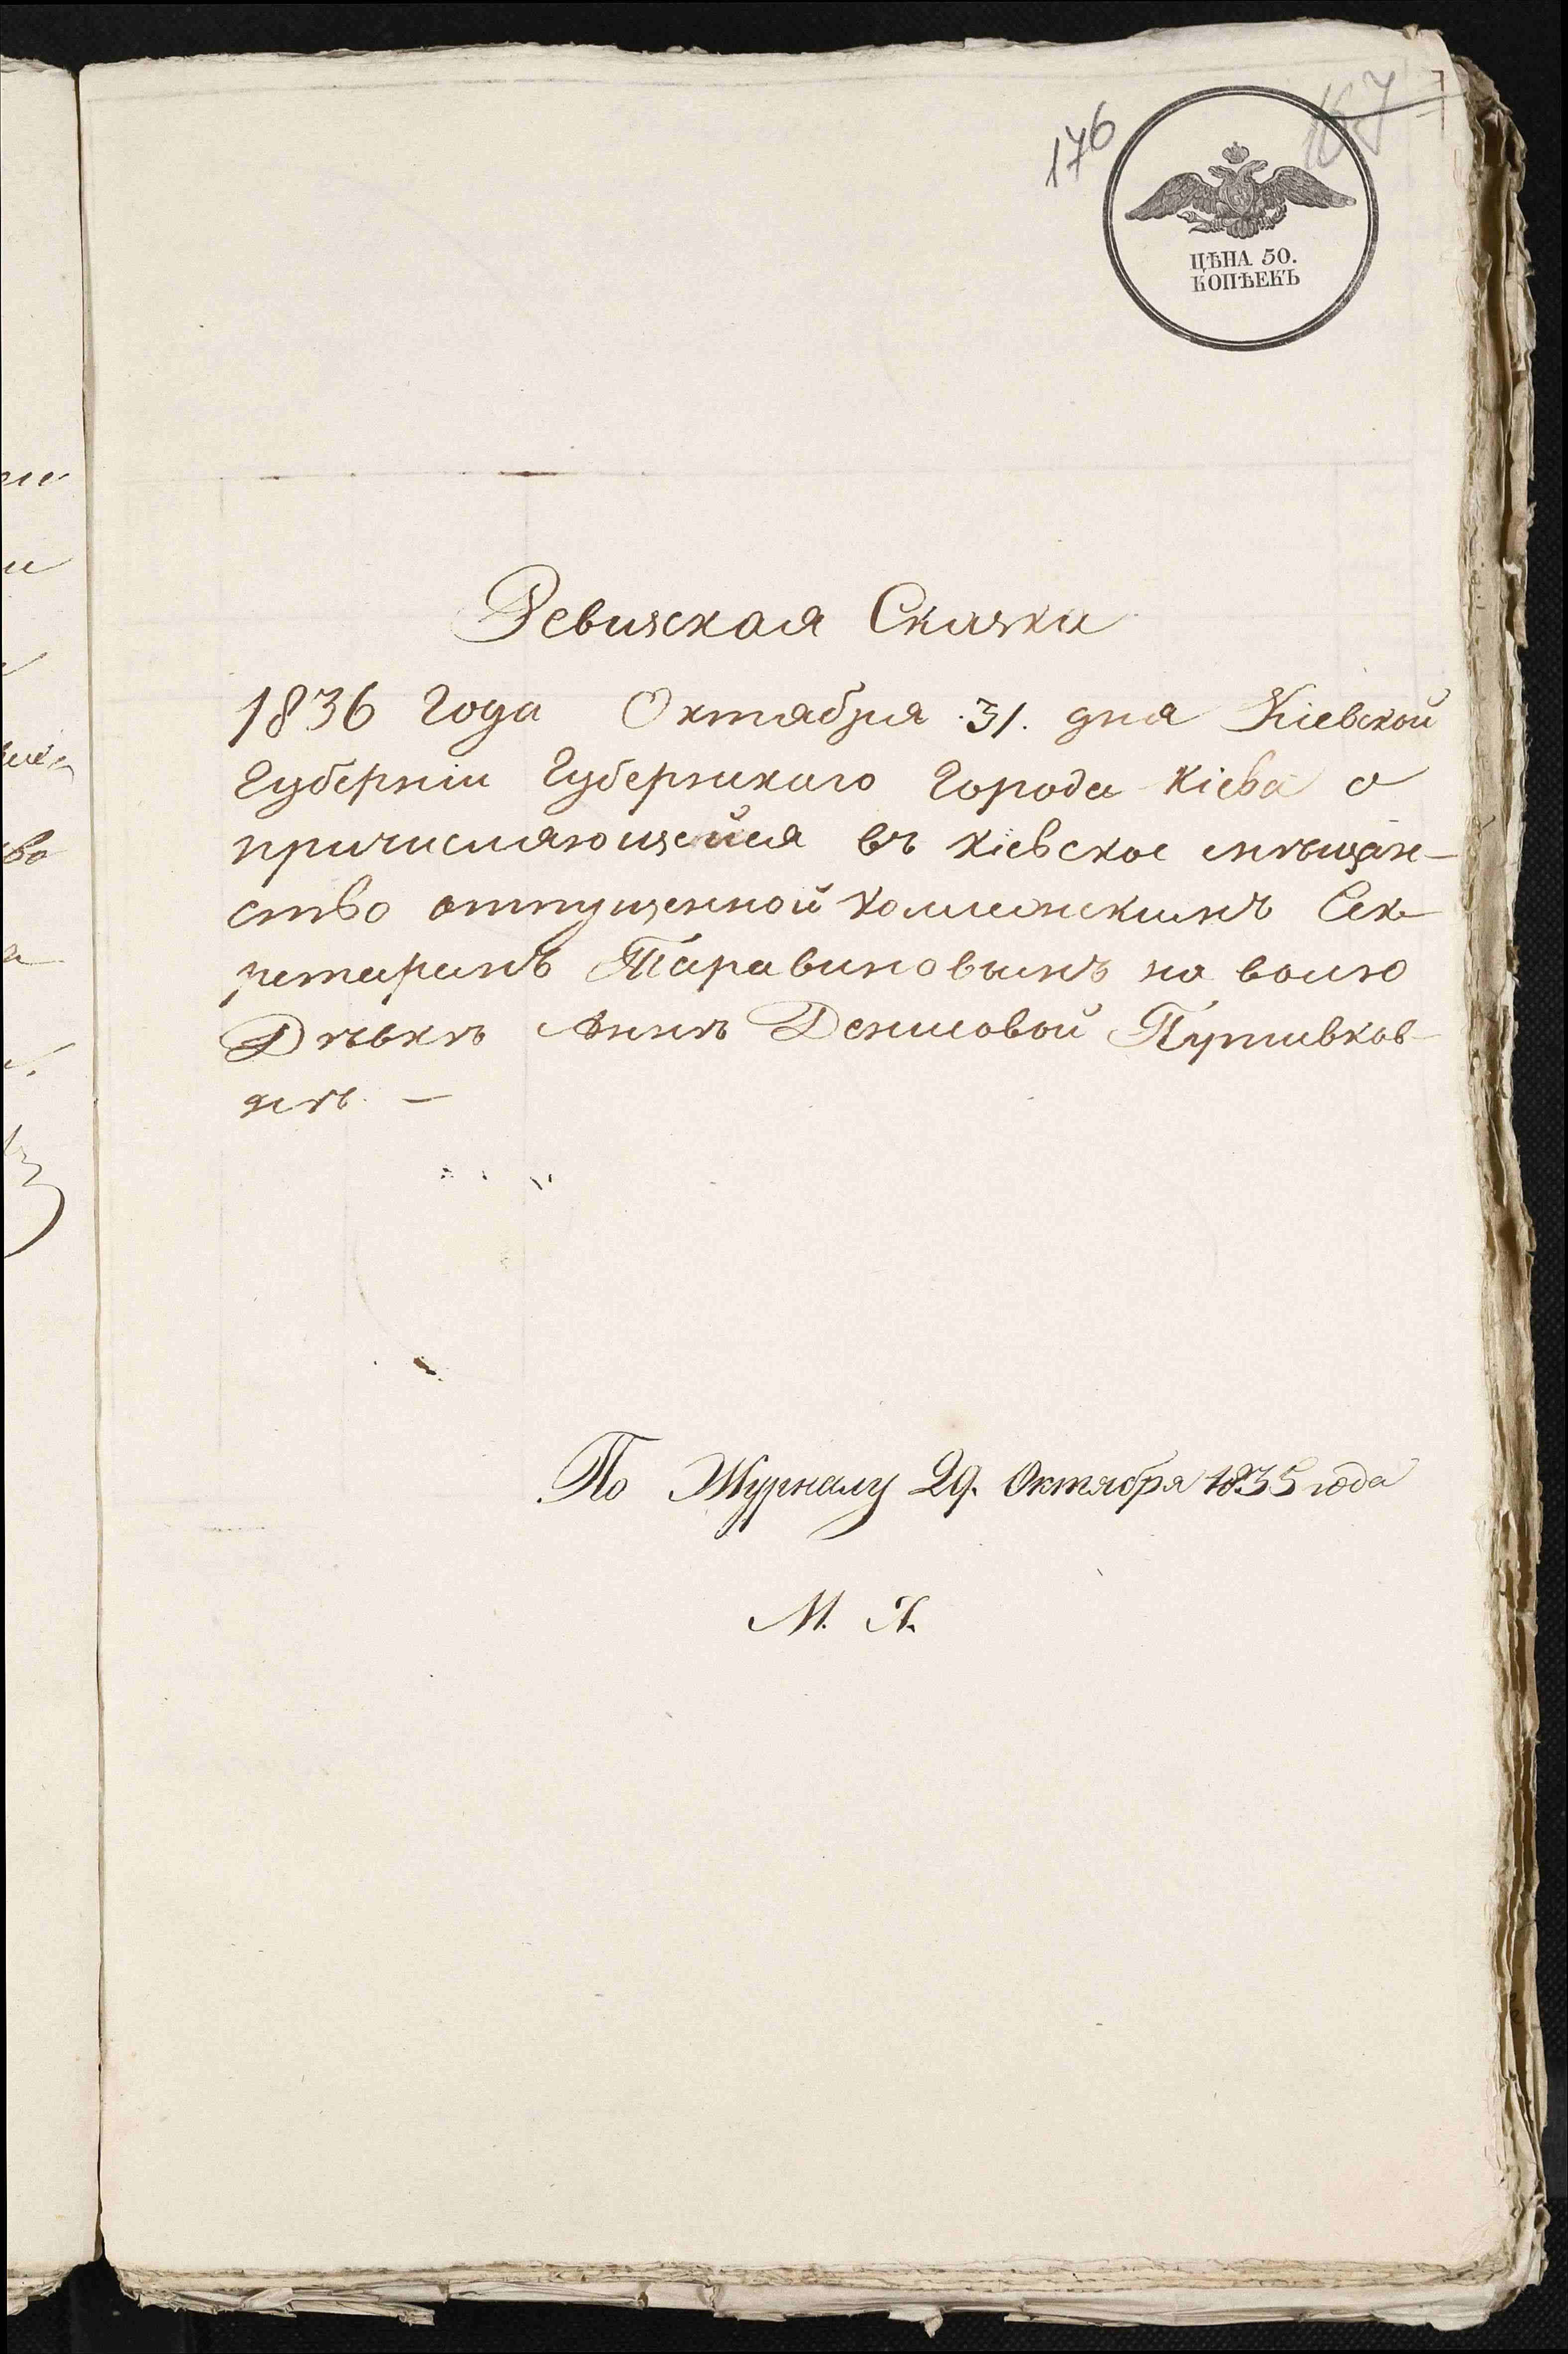 176
167
ЦѢНА 50.
КОПѢЕКЪ
Ревизская Сказка
1836 Года Октября 31. дня Кіевской
Губерніи Губернскаго Города Кіева о
причисляющейся въ кіевское мѣщан-
ство отпущенной Коллежскимъ Сек-
ретаремъ Таравиновымъ на волю
Дѣвкѣ Аннѣ Денисовой
По Журналу 29. Октября 1835 года